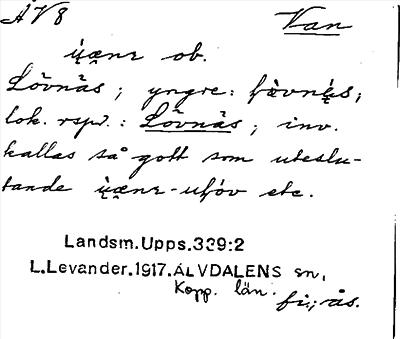 ÄV 8 Van
ob.
Lövnäs; yngre:
lok. resp.: Lövnäs; inv.
kallas så gott som uteslu-
tande etc.
Landsm.Upps.339:2
L.Levander.1917.ÄLVDALENS sn,
Kopp. län.
ås.